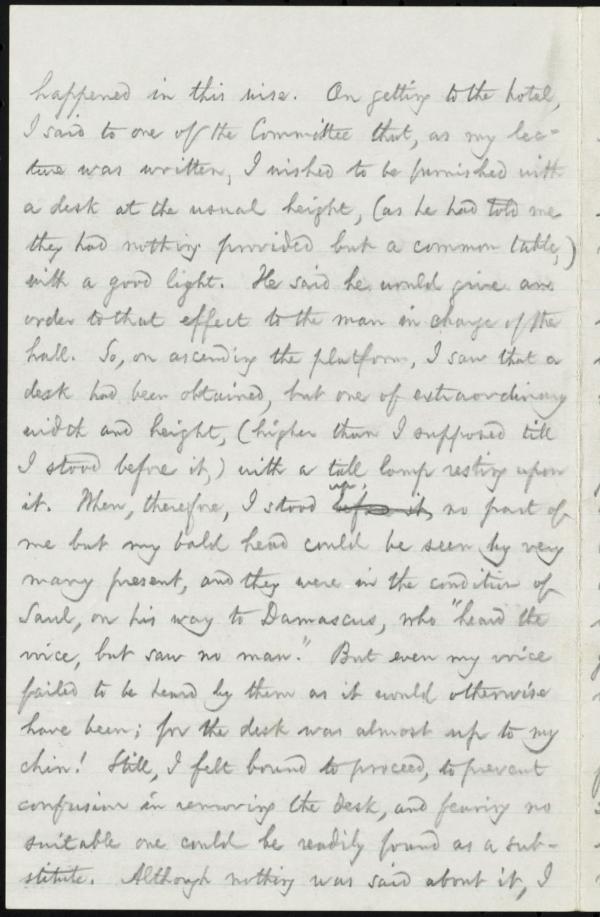 happened in this wise. On getting to the hotel,
I said to one of the Committee that, as my lec-
ture was written, I wished to be furnished with
a desk at the usual height, (as he had told me
they had nothing provided but a common table,)
with a good light. He said he would give an
order to that effect to the man in charge of the
hall. So, on ascending the platform, I saw that a
desk had been obtained, but one of extraordinary
width and height, (higher than I supposed till
I stood before it,) with a tall lamp resting upon
it. When, therefore, I stood before it, up, no part of
me but my bald head could be seen by very
many present, and they were in the condition of
Saul, on his way to Damascus, who "heard the
voice, but saw no man." But even my voice
failed to be heard by them as it would otherwise
have been; for the desk was almost up to my
chin! Still, I felt bound to proceed, to prevent
confusion in removing the desk, and fearing no
suitable one could be readily found as a sub-
stitute. Although nothing was said about it, I